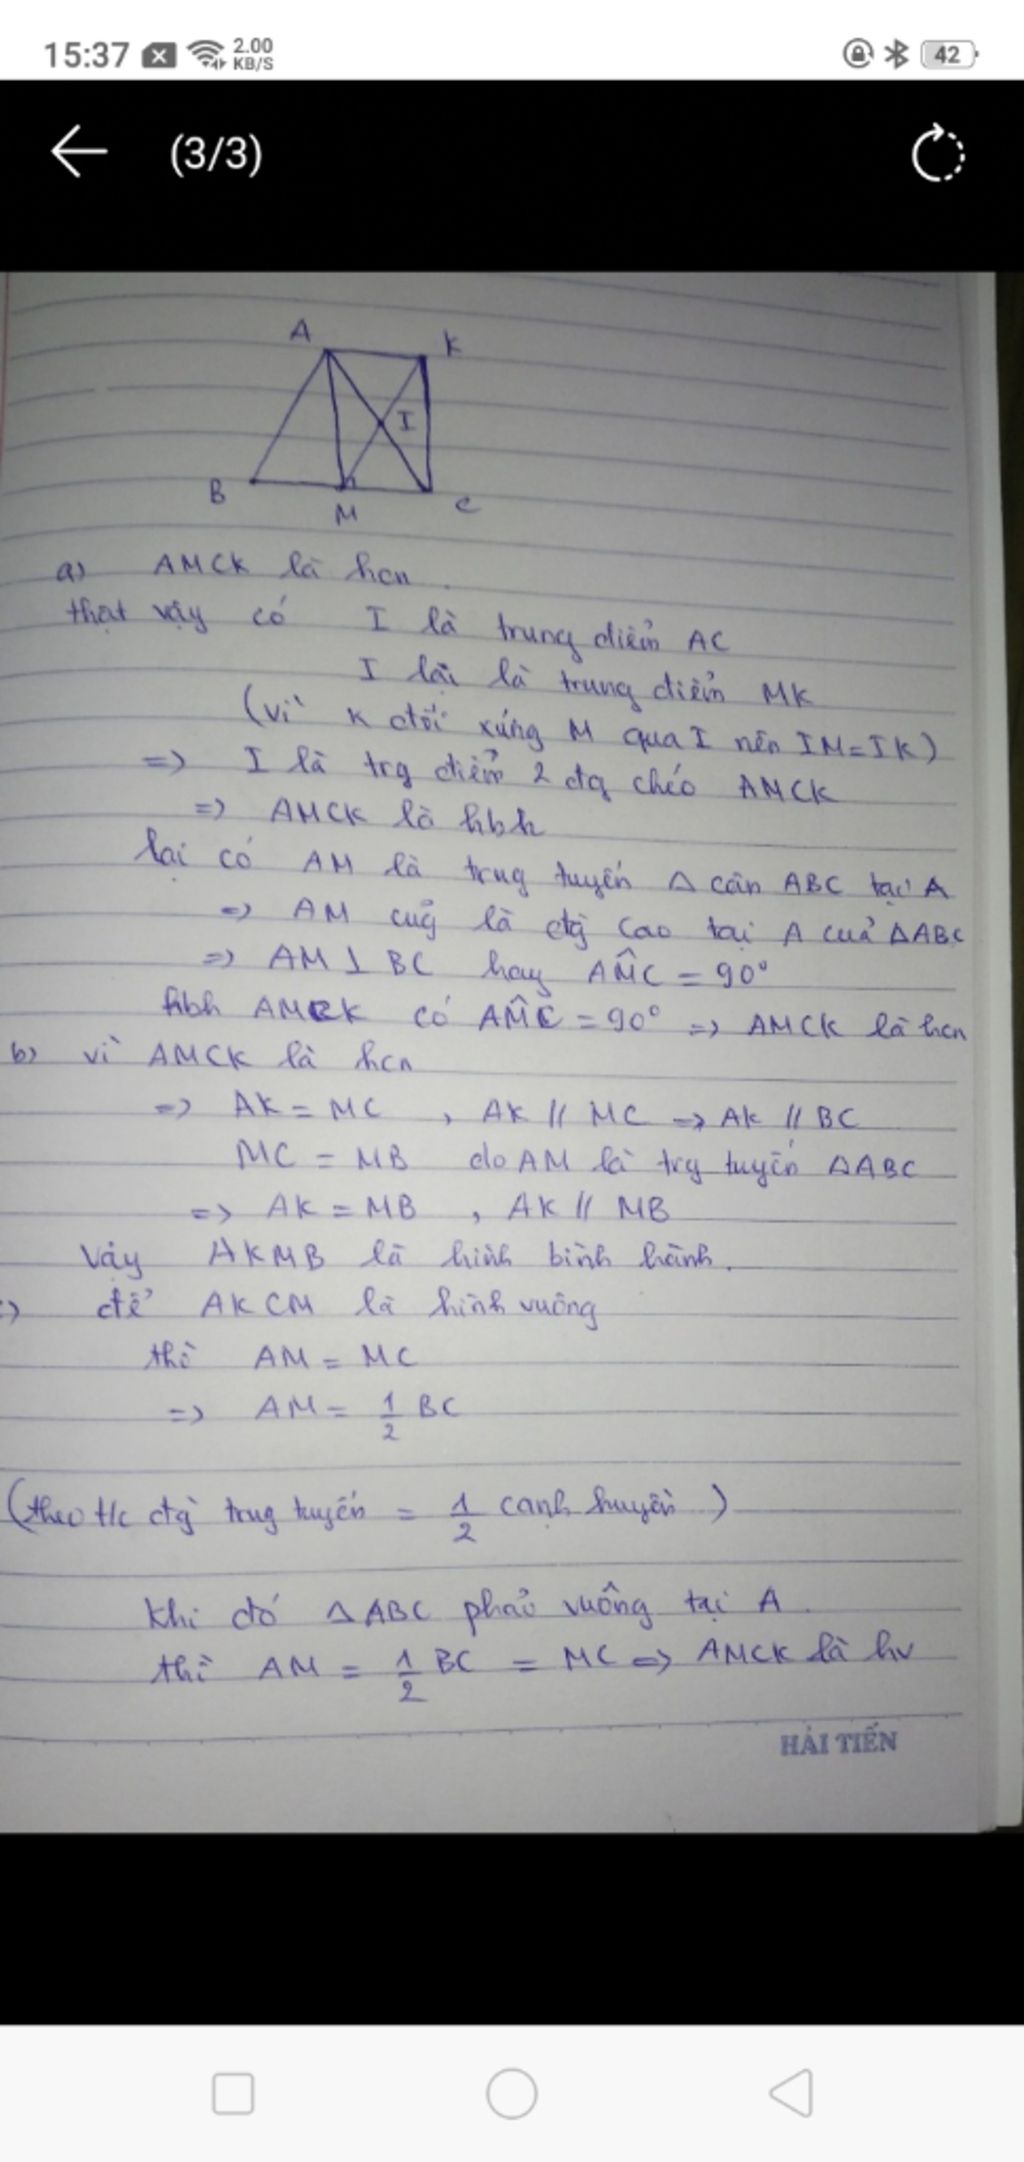 15:37
2.00
KB/S
42
(3/3)
A
K
I
B
M
C
a) AMCK là hcn
thật vậy có I là trung điểm AC
I lại là trung điểm MK
(vì K đối xứng M qua I nên IM=IK)
=> I là trg điểm 2 đg chéo AMCK
=> AMCK là hbh
lại có AM là trug tuyến Δ cân ABC tại A
=> AM cũg là đg cao tại A của ΔABC
=> AM ⊥ BC hay AM̂C = 90°
hbh AMCK có AM̂C = 90° => AMCK là hcn
b) vì AMCK là hcn
=> AK = MC , AK // MC => AK // BC
MC = MB do AM là trg tuyến ΔABC
=> AK = MB , AK // MB
Vậy AKMB là hình bình hành.
c) để AKCM là hình vuông
thì AM = MC
=> AM = 1/2 BC
(theo t/c đg trug tuyến = 1/2 cạnh huyền)
Khi đó ΔABC phải vuông tại A.
thì AM = 1/2 BC = MC => AMCK là hv
HẢI TIẾN